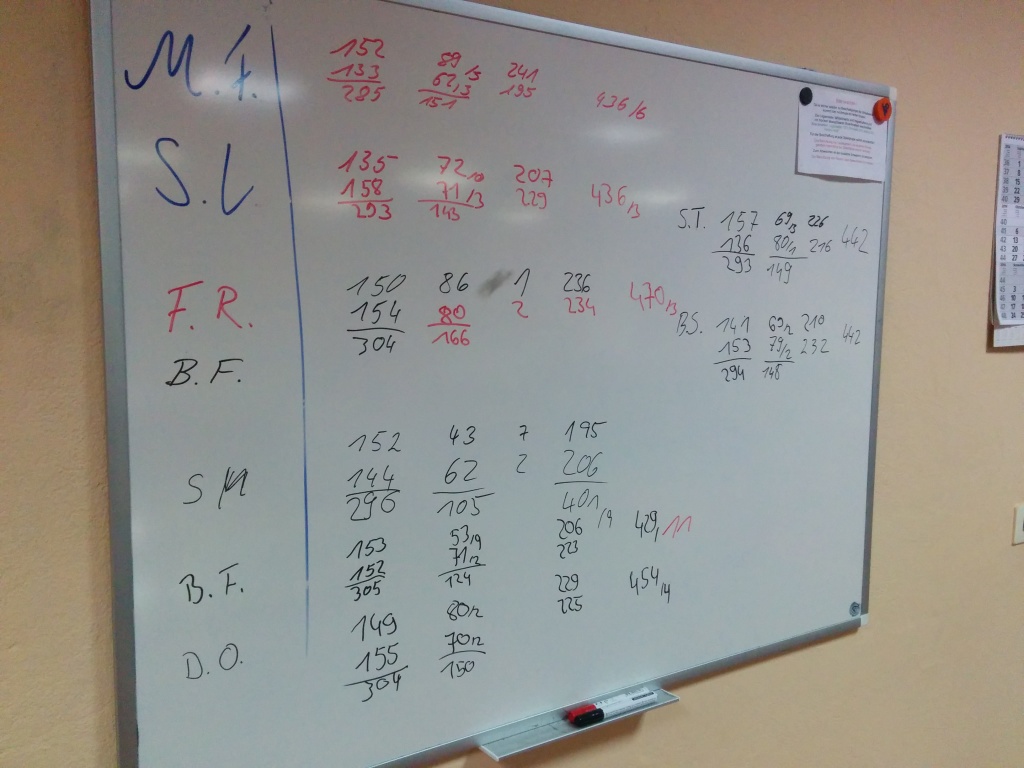 M. F. 152 89 241
133 62/3 195
285 151 436/6
S. L 135 72/0 207
158 71/3 229 436/3
293 143
S.T. 157 69/3 226
136 80/1 216 442
293 149
F. R. 150 86 1 236
154 80 2 234 470/3
304 166
B.S. 141 69/2 210
153 79/2 232 442
294 148
B. F.
152 43 7 195
S M 144 62 2 206
296 105 401/9
153 53/9 206 429/11
152 71/2 223
B. F. 305 124
149 80/2 229 454/4
D. O. 155 70/2 225
304 150